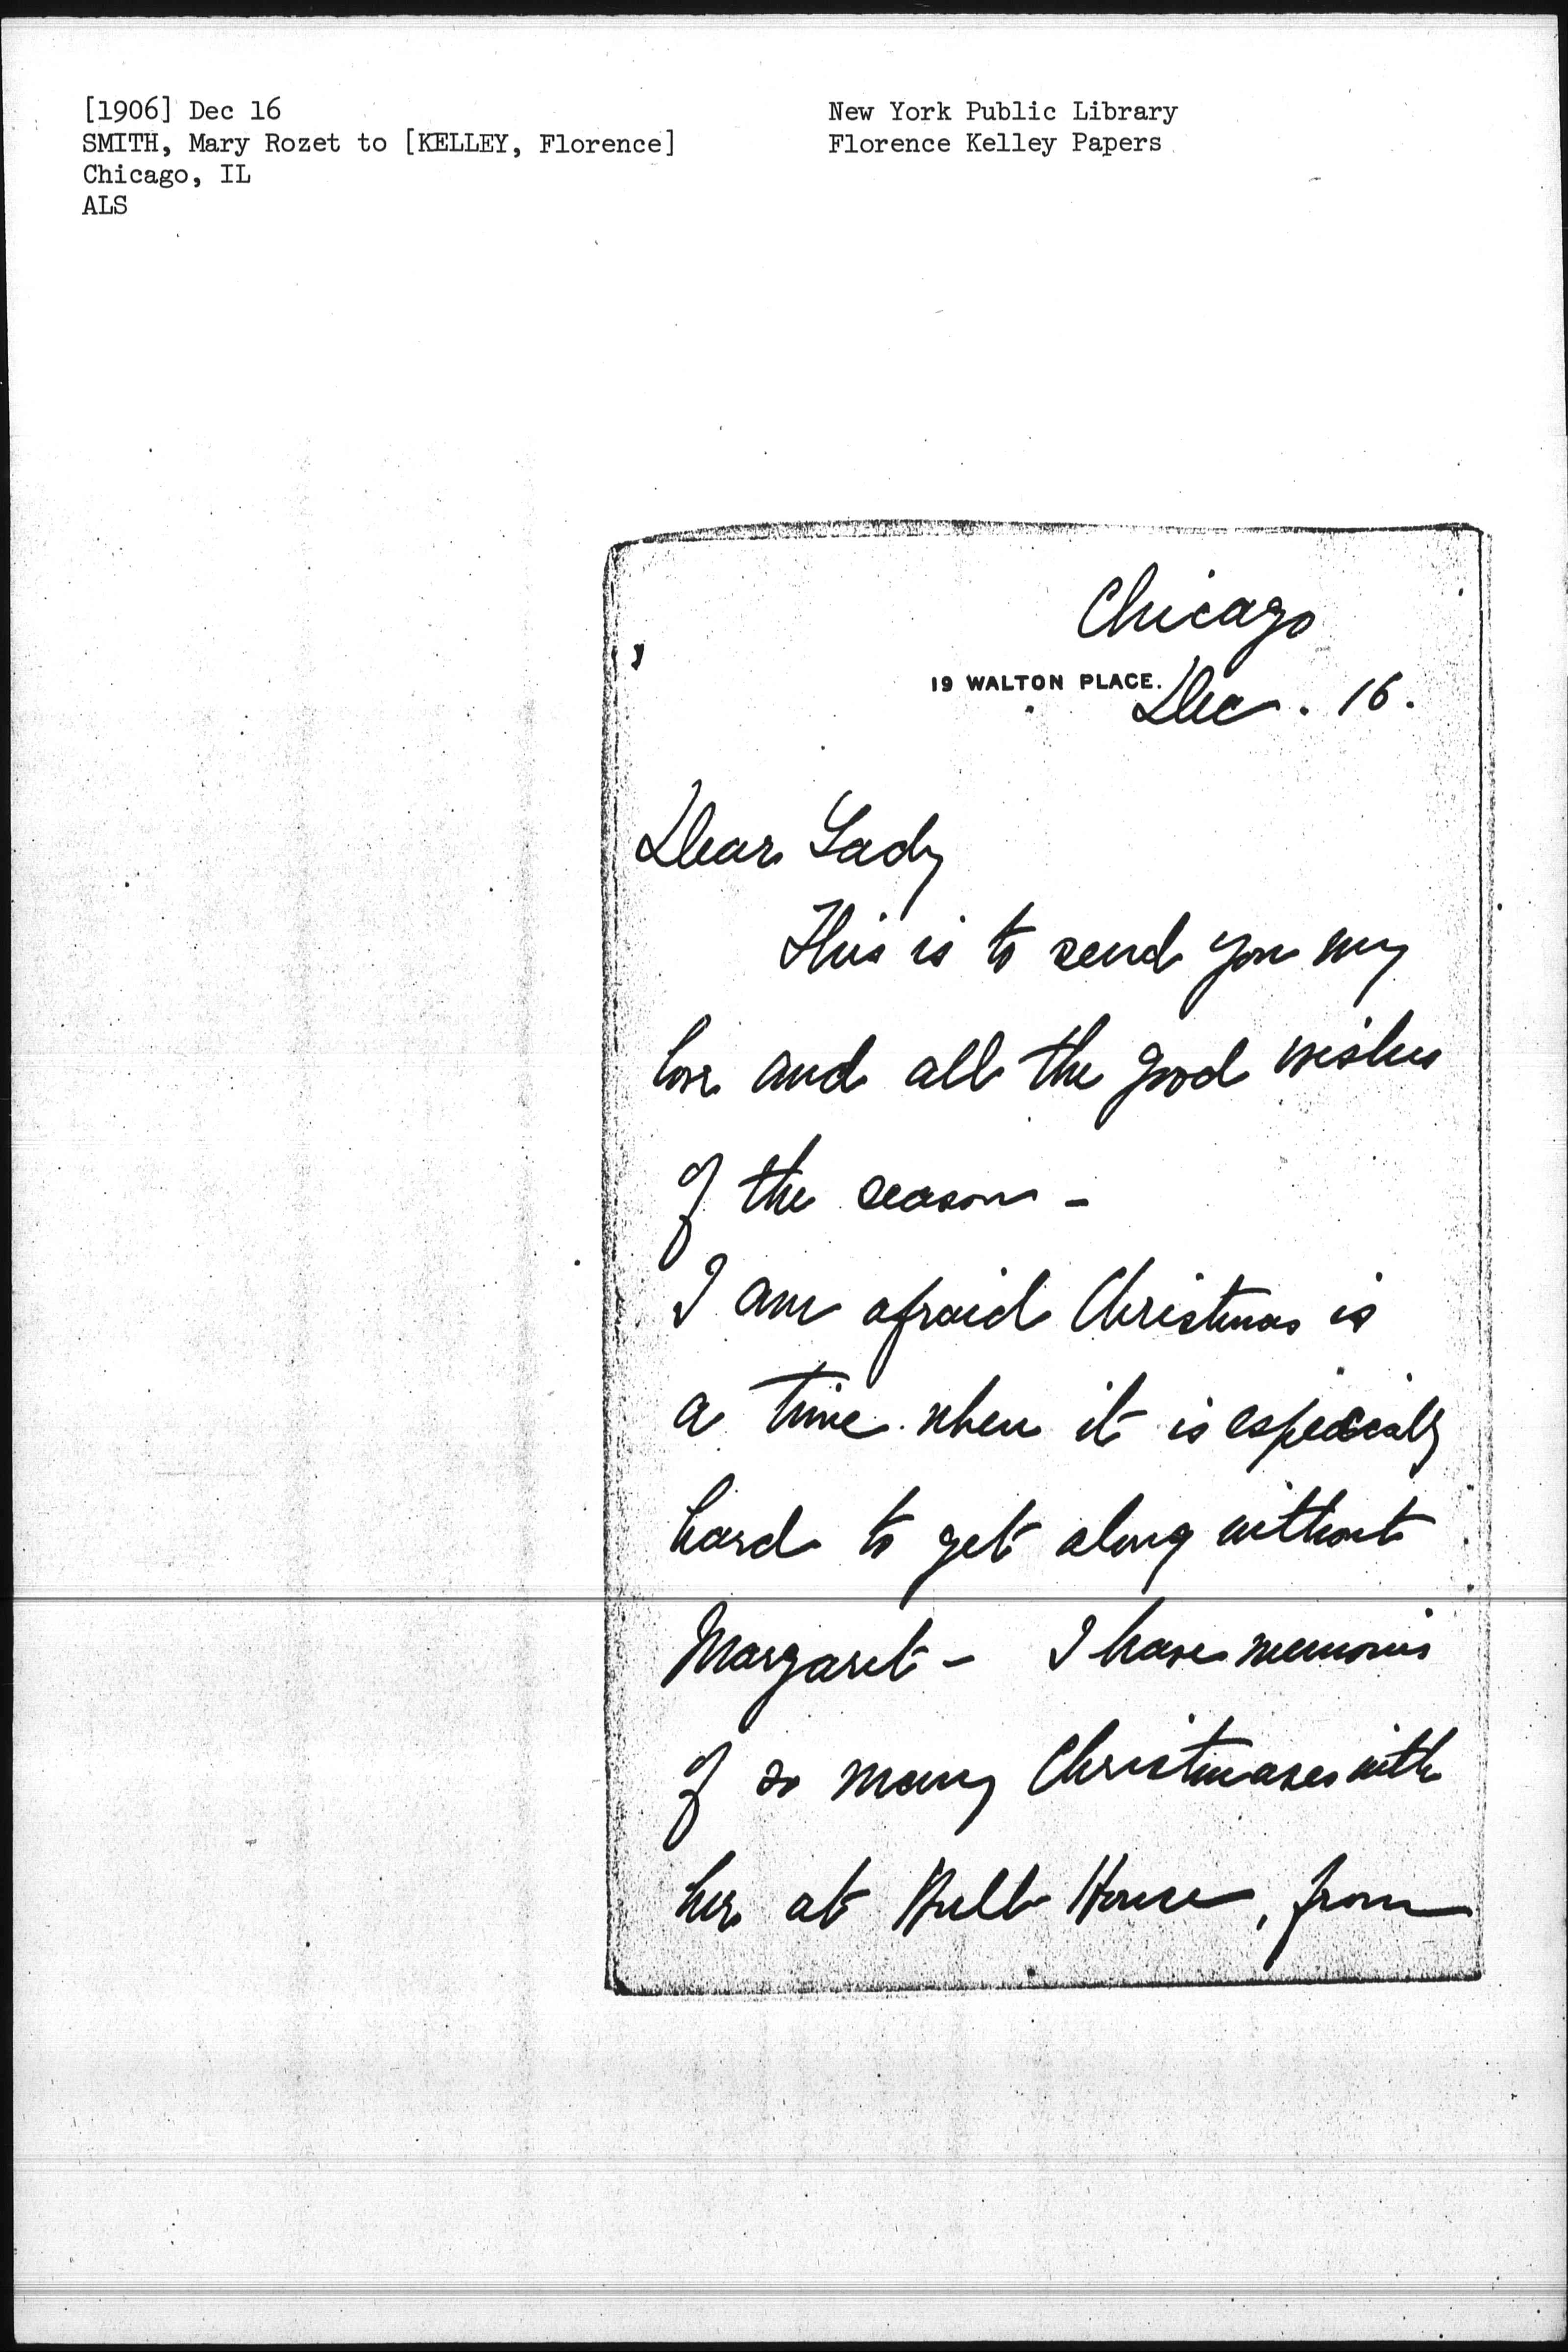 [1906] Dec 16
SMITH, Mary Rozet to [KELLEY, Florence]
Chicago, IL
ALS
New York Public Library
Florence Kelley Papers
Chicago
19 WALTON PLACE.
Dec. 16.
Dear Lady
This is to send you my
love and all the good wishes
of the season -
I am afraid Christmas is
a time when it is especially
hard to get along without
Margaret - I have memories
of so many Christmases with
her at Hull House, from